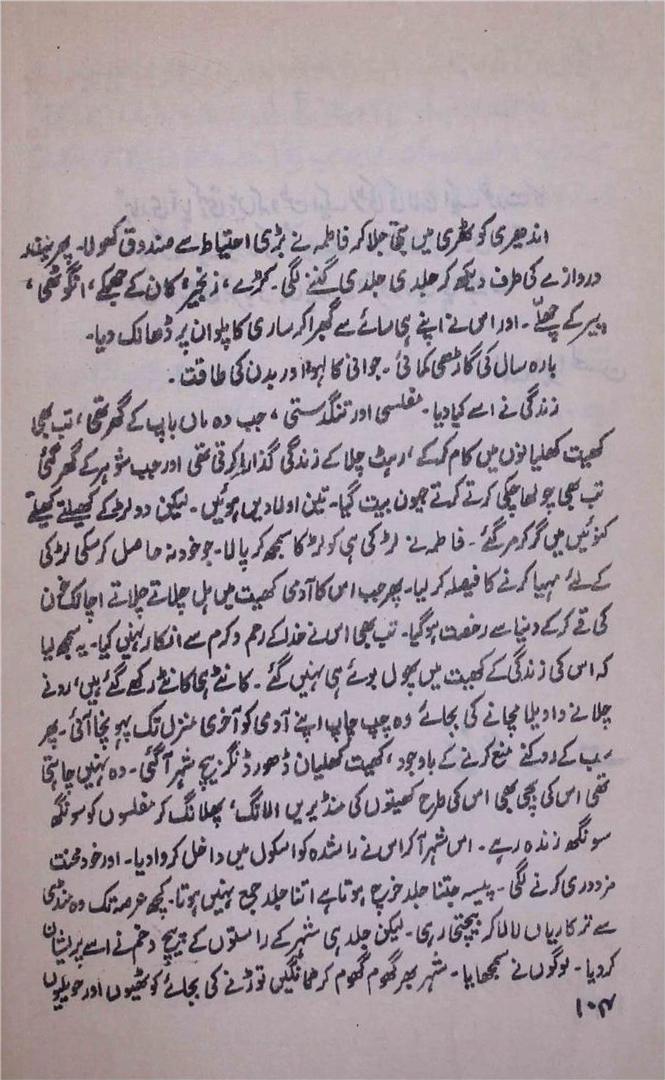 اندھیری کوٹھری میں بتی جلا کر فاطمہ نے بڑی احتیاط سے صندوق کھولا۔ پھر بند
دروازے کی طرف دیکھ کر جلدی جلدی گننے لگی۔ کڑے، زنجیر، کان کے جھمکے، انگوٹھی،
پیر کے چھلّے۔ اور اس نے اپنے ہی سائے سے گھبرا کر ساری کا پلو ان پر ڈھانک دیا۔
بارہ سال کی گاڑھی کمائی۔ جوانی کا لہو اور بدن کی طاقت۔
زندگی نے اسے کیا دیا۔ مفلسی اور تنگدستی، جب وہ ماں باپ کے گھر تھی، تب بھی
کھیت کھلیانوں میں کام کر کے، رہٹ چلا کے زندگی گذارا کرتی تھی اور جب شوہر کے گھر گئی
تب بھی چولھا چکی کرتے کرتے جیون بیت گیا۔ تین اولادیں ہوئیں۔ لیکن دو لڑکے کھیلتے کھیلتے
کنوئیں میں گر کر مر گئے۔ فاطمہ نے لڑکی ہی کو لڑکا سمجھ کر پالا۔ جو خود نہ حاصل کر سکی لڑکی
کے لئے مہیا کرنے کا فیصلہ کر لیا۔ پھر جب اس کا آدمی کھیت میں ہل چلاتے چلاتے اچانک خون
کی قے کر کے دنیا سے رخصت ہو گیا۔ تب بھی اس نے خدا کے رحم و کرم سے انکار نہیں کیا۔ یہ سمجھ لیا
کہ اس کی زندگی کے کھیت میں پھول بوئے ہی نہیں گئے۔ کانٹے ہی کانٹے رکھے گئے ہیں، رونے
چلانے واویلا مچانے کی بجائے وہ چپ چاپ اپنے آدمی کو آخری منزل تک پہونچا آئی۔ پھر
سب کے روکنے منع کرنے کے باوجود، کھیت کھلیان ڈھور ڈنگر بیچ شہر آ گئی۔ وہ نہیں چاہتی
تھی اس کی بچی بھی اس کی طرح کھیتوں کی منڈیریں الانگ، پھلانگ کر مفلسوں کو سونگھ
سونگھ زندہ رہے۔ اس شہر آ کر اس نے راشدہ کو اسکول میں داخل کروا دیا۔ اور خود محنت
مزدوری کرنے لگی۔ پیسہ جتنا جلد خرچ ہوتا ہے اتنا جلد جمع نہیں ہوتا۔ کچھ عرصہ تک وہ منڈی
سے ترکاریاں لا لا کر بیچتی رہی۔ لیکن جلد ہی شہر کے راستوں کے پیچ و خم نے اسے پریشان
کر دیا۔ لوگوں نے سمجھایا۔ شہر بھر گھوم گھوم کر ٹانگیں توڑنے کی بجائے کوٹھیوں اور حویلیوں
۱۰۴